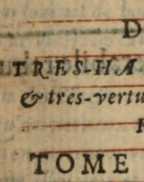 D
TRES-HA
& tres-vertu
TOME